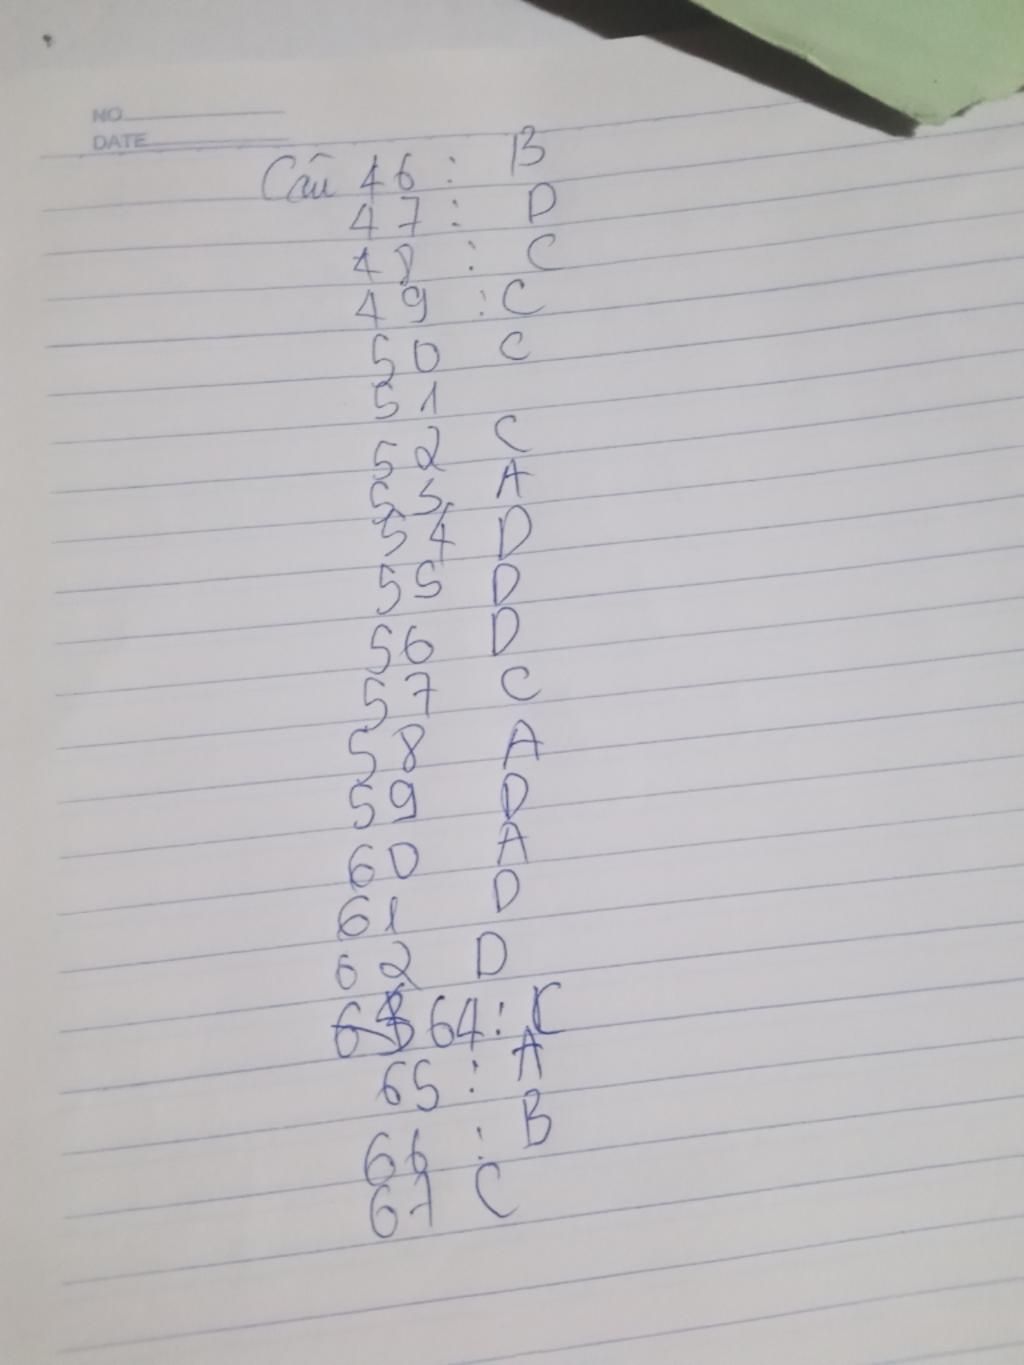 NO
DATE
Câu 46 : B
47 : D
48 : C
49 : C
50 C
51
52 C
53 A
54 D
55 D
56 D
57 C
58 A
59 D
60 A
61 D
62 D
64 : C
65 : A
66 : B
67 C